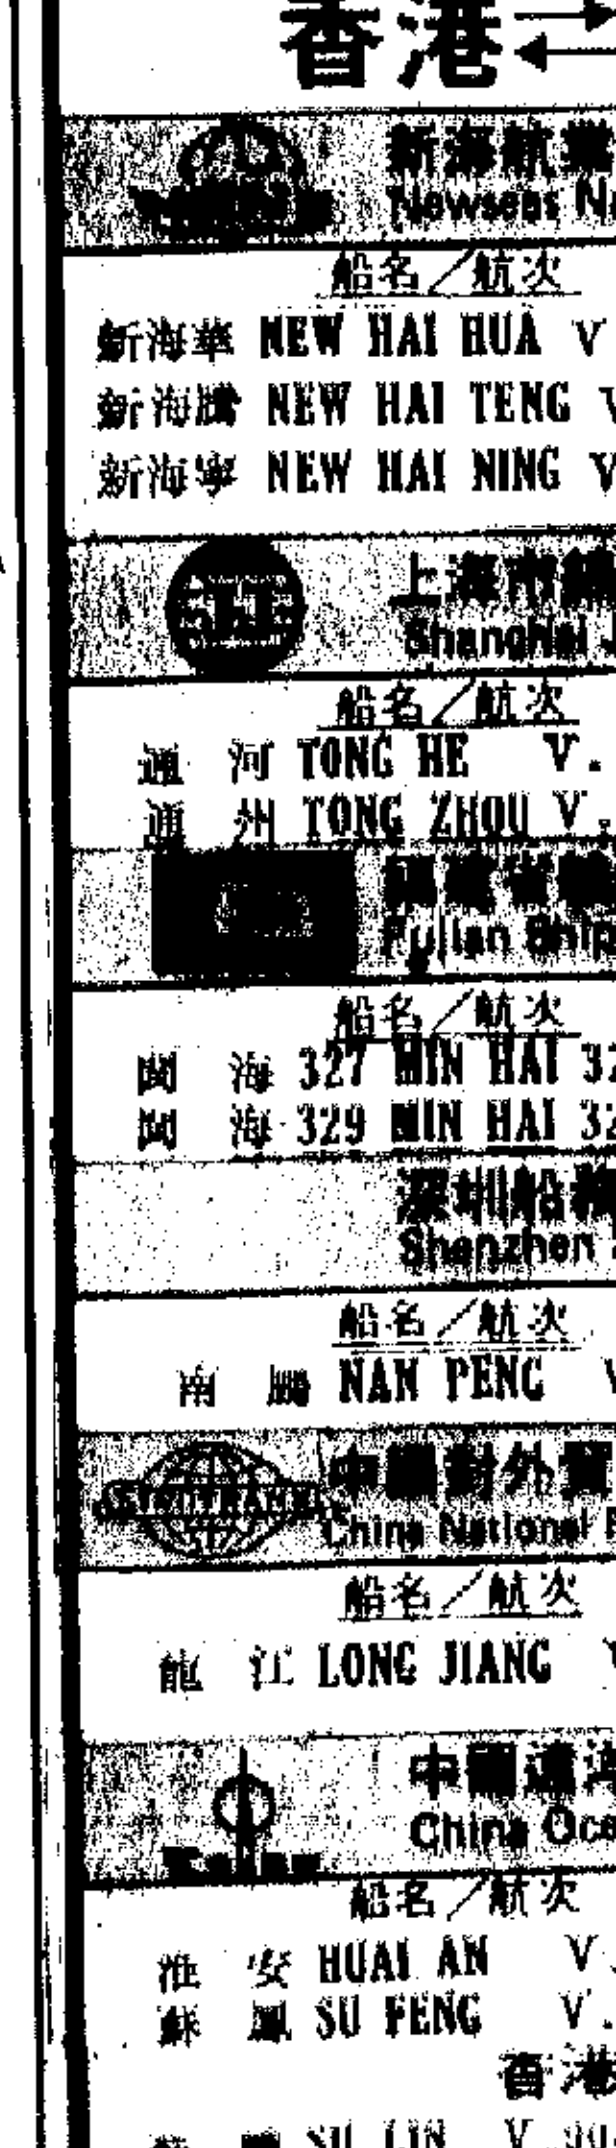 香港
新海航業
Newseas
船名／航次
新海華 NEW HAI HUA V
新海騰 NEW HAI TENG V
新海寧 NEW HAI NING V
上海市錦
Shanghai J
船名／航次
通 河 TONG HE V.
通 州 TONG ZHOU V.
福建省輪
Fujian Ship
船名／航次
閩 海 327 MIN HAI 32
閩 海 329 MIN HAI 32
深圳船務
Shenzhen
船名／航次
南 鵬 NAN PENG V
SINOTRANS
中國對外貿
China National F
船名／航次
龍 江 LONG JIANG V
中國遠洋
China Oce
船名／航次
淮 安 HUAI AN V.
蘇 鳳 SU FENG V.
香港
SU LIN V.